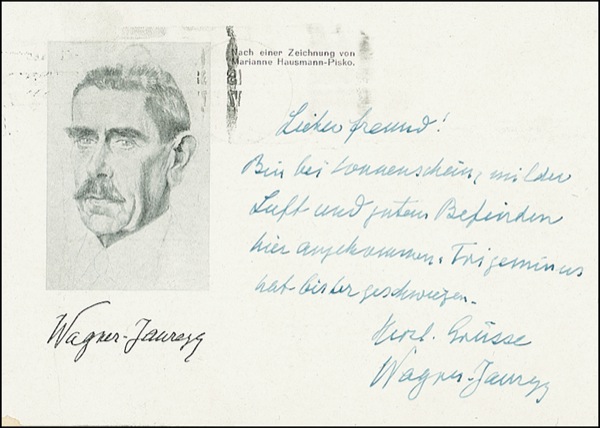 Nach einer Zeichnung von
Marianne Hausmann-Pisko.
Lieber Freund!
Bin bei Sonnenschein, milder
Luft und gutem Befinden
hier angekommen. Trigeminus
hat bisher geschwiegen.
Herzl. Grüsse
Wagner-Jauregg
Wagner-Jauregg